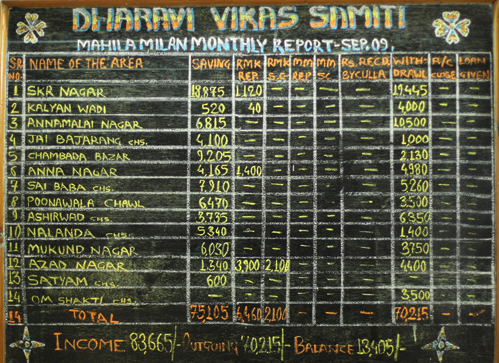 DHARAVI VIKAS SAMITI
MAHILA MILAN MONTHLY REPORT-SEP.09,
SR NO. NAME OF THE AREA SAVING RMK REP. RMK S.C MM REP MM SC. RS. RECD. BYCULLA WITH-DRAWL A/C CLOSE LOAN GIVEN
1 SKR NAGAR 18,875 1,120 — — — — 19,445 — —
2 KALYAN WADI 520 40 — — — — 4,000 — —
3 ANNAMALAI NAGAR 6,815 — — — — — 10,500 — —
4 JAI BAJARANG CHS. 4,100 — — — — — 1,000 — —
5 CHAMBADA BAZAR 9,205 — — — — — 2,130 — —
6 ANNA NAGAR 4,165 1,400 — — — — 4,980 — —
7 SAI BABA CHS. 7,910 — — — — — 5,260 — —
8 POONAWALA CHAWL 6,470 — — — — — 3,500 — —
9 ASHIRWAD CHS. 3,735 — — — — — 6,350 — —
10 NALANDA CHS. 5,340 — — — — — 1,400 — —
11 MUKUND NAGAR 6,030 — — — — — 3,750 — —
12 AZAD NAGAR 1,340 3,900 2,100 — — — 4,400 — —
13 SATYAM CHS. 600 — — — — — — — —
14 OM SHAKTI CHS. — — — — — — 3,500 — —
14 TOTAL 75,105 6,460 2,100 — — — 70,215 — —
INCOME 83,665/- OUTGOING 70,215/- BALANCE 13,405/-